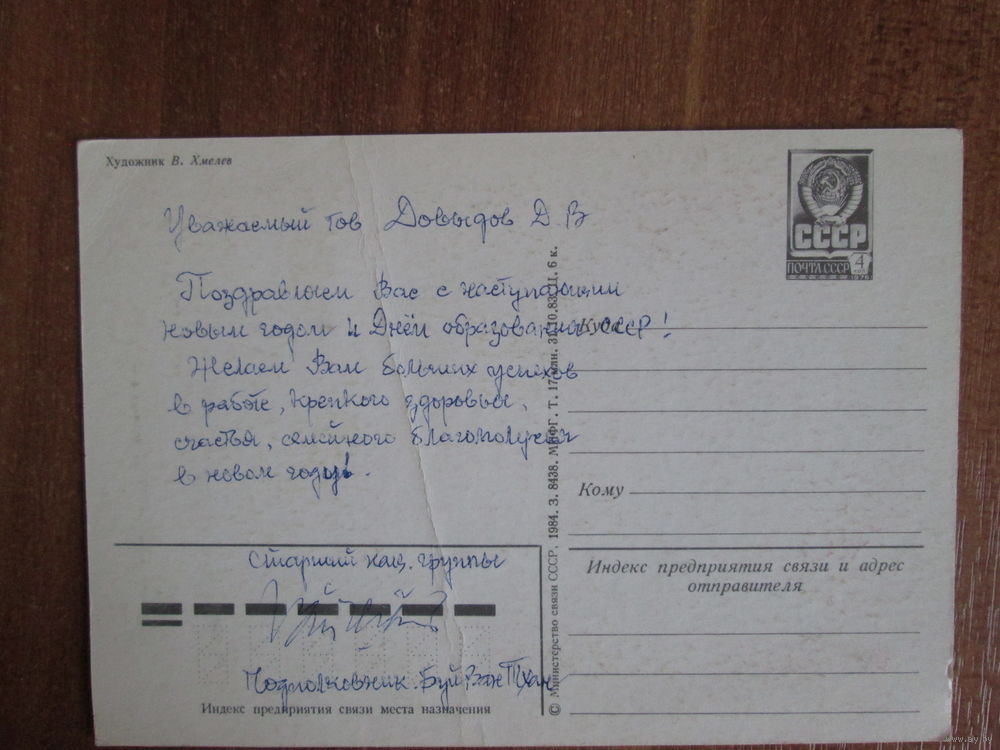 Художник В. Хмелев
СССР
ПОЧТА СССР 4 коп
1976
Уважаемый тов Довыдов Д. В
Поздравляем Вас с наступающим
новым годом и Днём образования СССР!
Желаем Вам больших успехов
в работе, крепкого здоровья,
счастья, семейного благополучия
в новом году!.
Старший нац. группы
Подполковник. Буй Ван Тхан
Индекс предприятия связи места назначения
© Министерство связи СССР. 1984. З. 8438. МПФГ. Т. 17 млн. 31.10.83. Ц. 6 к.
Куда
Кому
Индекс предприятия связи и адрес
отправителя
www.ay.by